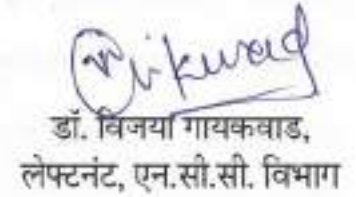 डॉ. विजया गायकवाड,
लेफ्टनंट, एन.सी.सी. विभाग